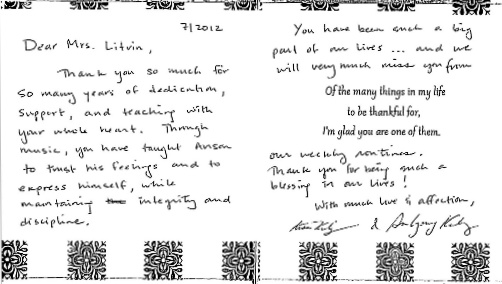 7/2012
Dear Mrs. Litvin,
Thank you so much for
so many years of dedication,
support, and teaching with
your whole heart. Though
music, you have taught Anson
to trust his feelings and to
express himself, while
maintaining the integrity and
discipline.
You have been such a big
part of our lives ... and we
will very much miss you from
Of the many things in my life
to be thankful for,
I'm glad you are one of them.
our weekly routines.
Thank you for being such a
blessing in our lives!
With much love & affection,
&